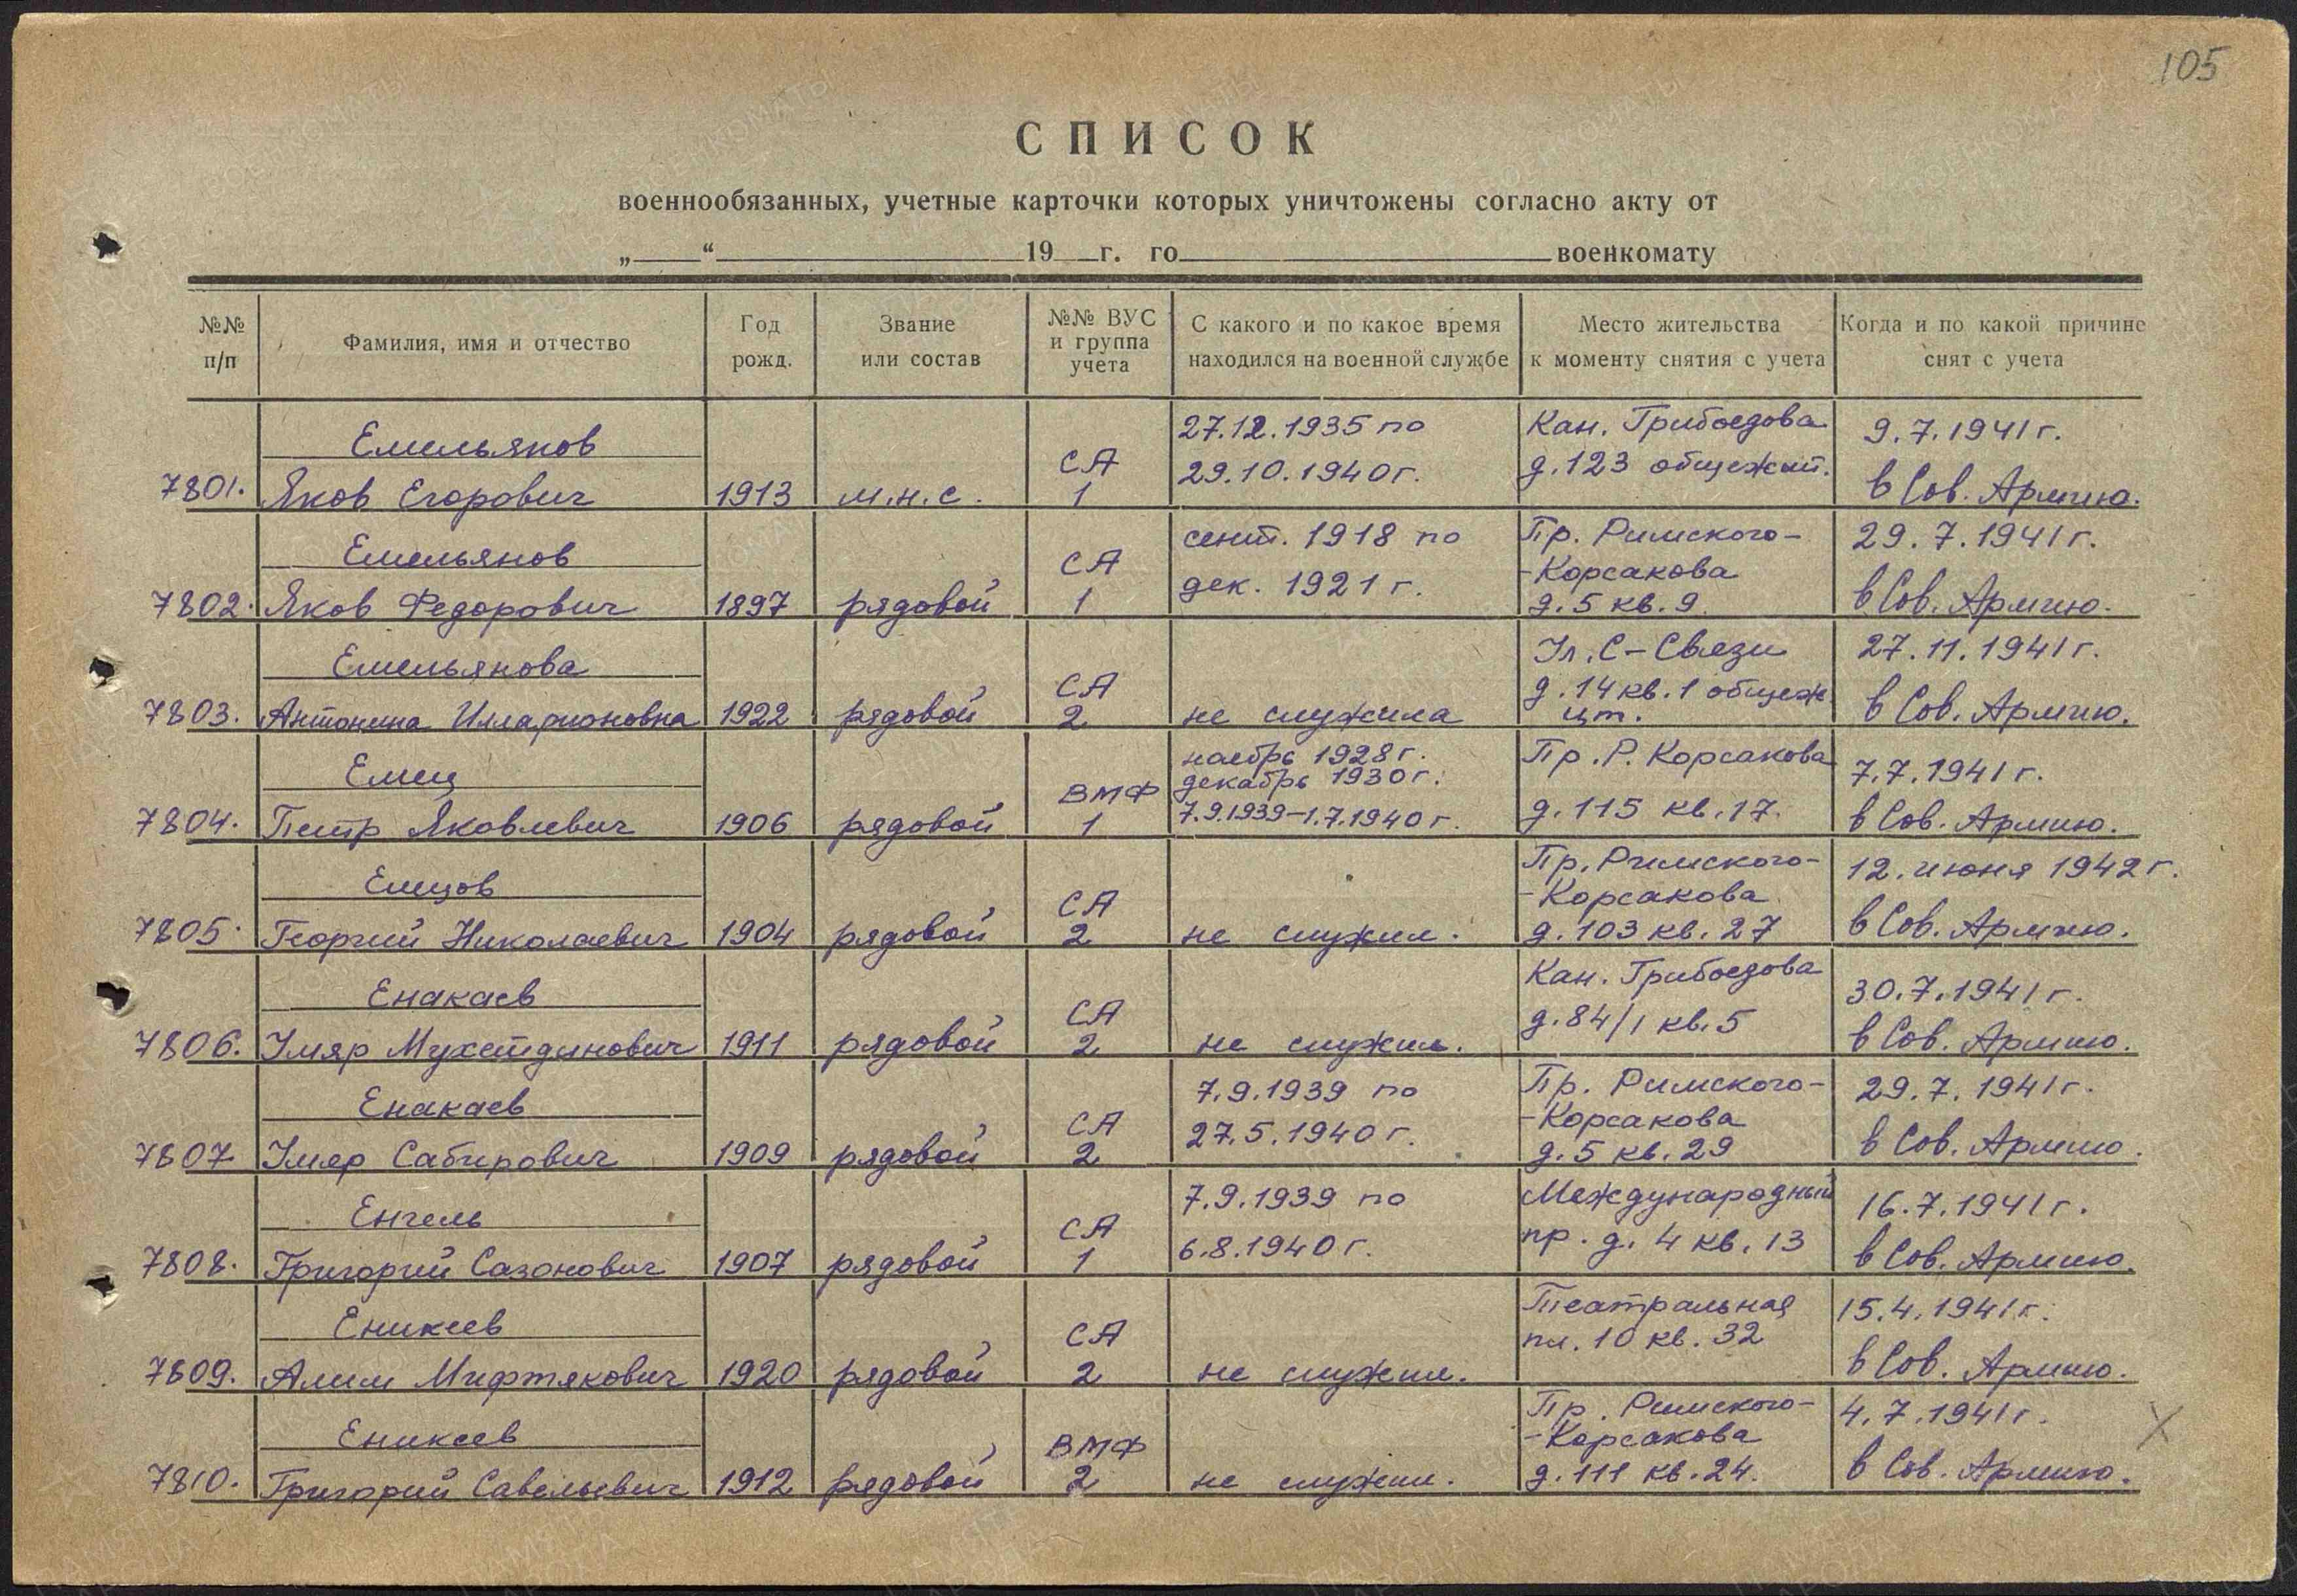 105
СПИСОК
военнообязанных, учетные карточки которых уничтожены согласно акту от
„ “ 19 г. го военкомату
№№ п/п
Фамилия, имя и отчество
Год рожд.
Звание или состав
№№ ВУС и группа учета
С какого и по какое время находился на военной службе
Место жительства к моменту снятия с учета
Когда и по какой причине снят с учета
Емельянов
7801. Яков Егорович
1913
м.н.с.
СА
1
27.12.1935 по
29.10.1940 г.
Кан. Грибоедова
д.123 общежит.
9.7.1941 г.
в Сов. Армию.
Емельянов
7802. Яков Федорович
1897
рядовой
СА
1
сент. 1918 по
дек. 1921 г.
Пр. Римского-
-Корсакова
д.5 кв.9
29.7.1941 г.
в Сов. Армию.
Емельянова
7803. Антонина Илларионовна
1922
рядовой
СА
2
не служила
Ул. С-Связи
д.14 кв.1 общеж
ит.
27.11.1941 г.
в Сов. Армию.
Емец
7804. Петр Яковлевич
1906
рядовой
ВМФ
1
ноябрь 1928 г.
декабрь 1930 г.
7.9.1939-1.7.1940 г.
Пр. Р. Корсакова
д.115 кв.17.
7.7.1941 г.
в Сов. Армию.
Емцов
7805. Георгий Николаевич
1904
рядовой
СА
2
не служил.
Пр. Римского-
-Корсакова
д.103 кв.27
12. июня 1942 г.
в Сов. Армию.
Енакаев
7806. Умяр Мухетдинович
1911
рядовой
СА
2
не служил.
Кан. Грибоедова
д.84/1 кв.5
30.7.1941 г.
в Сов. Армию.
Енакаев
7807 Умяр Сабирович
1909
рядовой
СА
2
7.9.1939 по
27.5.1940 г.
Пр. Римского-
-Корсакова
д.5 кв.29
29.7.1941 г.
в Сов. Армию.
Енгель
7808. Григорий Сазонович
1907
рядовой
СА
1
7.9.1939 по
6.8.1940 г.
Международный
пр. д. 4 кв.13
16.7.1941 г.
в Сов. Армию.
Еникеев
7809. Алим Мифтякович
1920
рядовой
СА
2
не служил.
Театральная
пл. 10 кв. 32
15.4.1941 г.
в Сов. Армию.
Еникеев
7810. Григорий Савельевич
1912
рядовой
ВМФ
2
не служил.
Пр. Римского-
-Корсакова
д.111 кв.24.
4.7.1941 г.
в Сов. Армию.